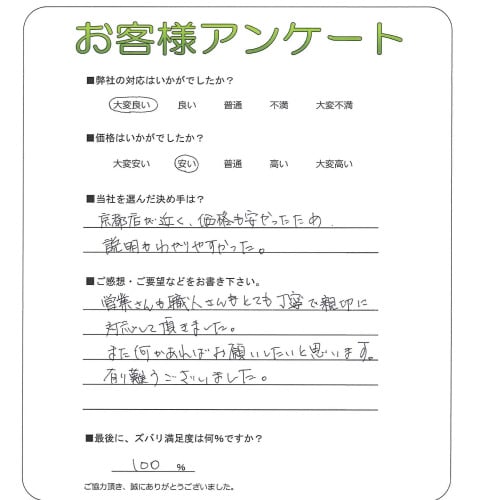 お客様アンケート
■弊社の対応はいかがでしたか？
大変良い 良い 普通 不満 大変不満
■価格はいかがでしたか？
大変安い 安い 普通 高い 大変高い
■当社を選んだ決め手は？
京都店が近く、価格も安かったため、
説明もわかりやすかった。
■ご感想・ご要望などをお書き下さい。
営業さんも職人さんもとても丁寧で親切に
対応して頂きました。
また何かあればお願いしたいと思います。
有り難うございました。
■最後に、ズバリ満足度は何%ですか？
100 %
ご協力頂き、誠にありがとうございました。